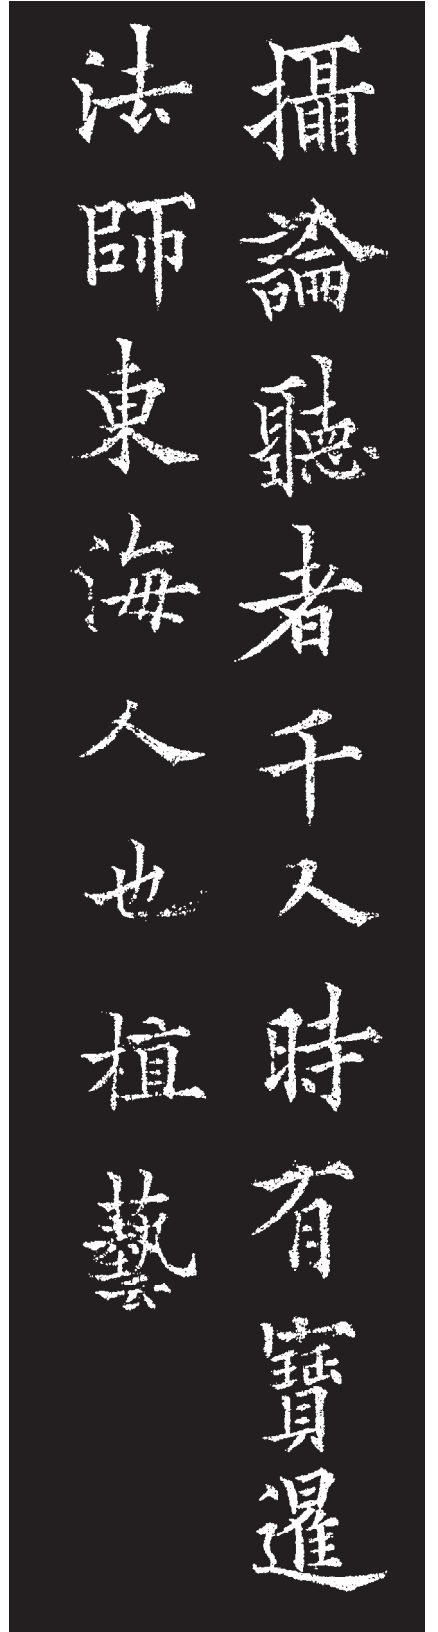 攝論聽者千人時有寶暹
法師東海人也植藝